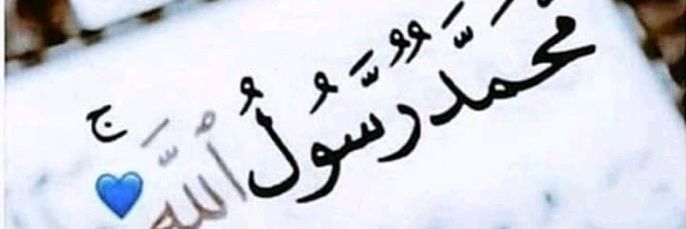 مُحَمَّدٌ رَّسُولُ ٱللَّهِ ۚ 💙